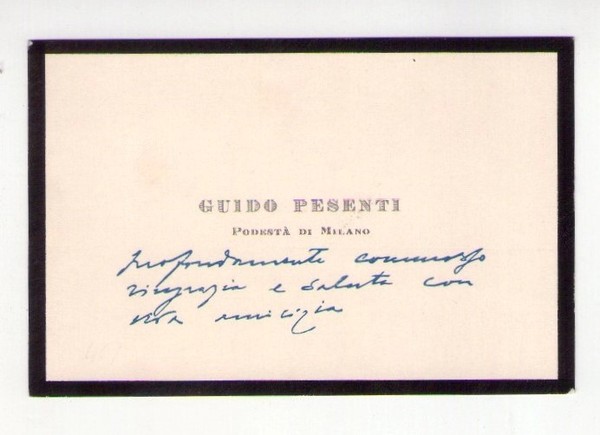 GUIDO PESENTI
PODESTÀ DI MILANO
profondamente commosso
ringrazia e saluta con
viva amicizia